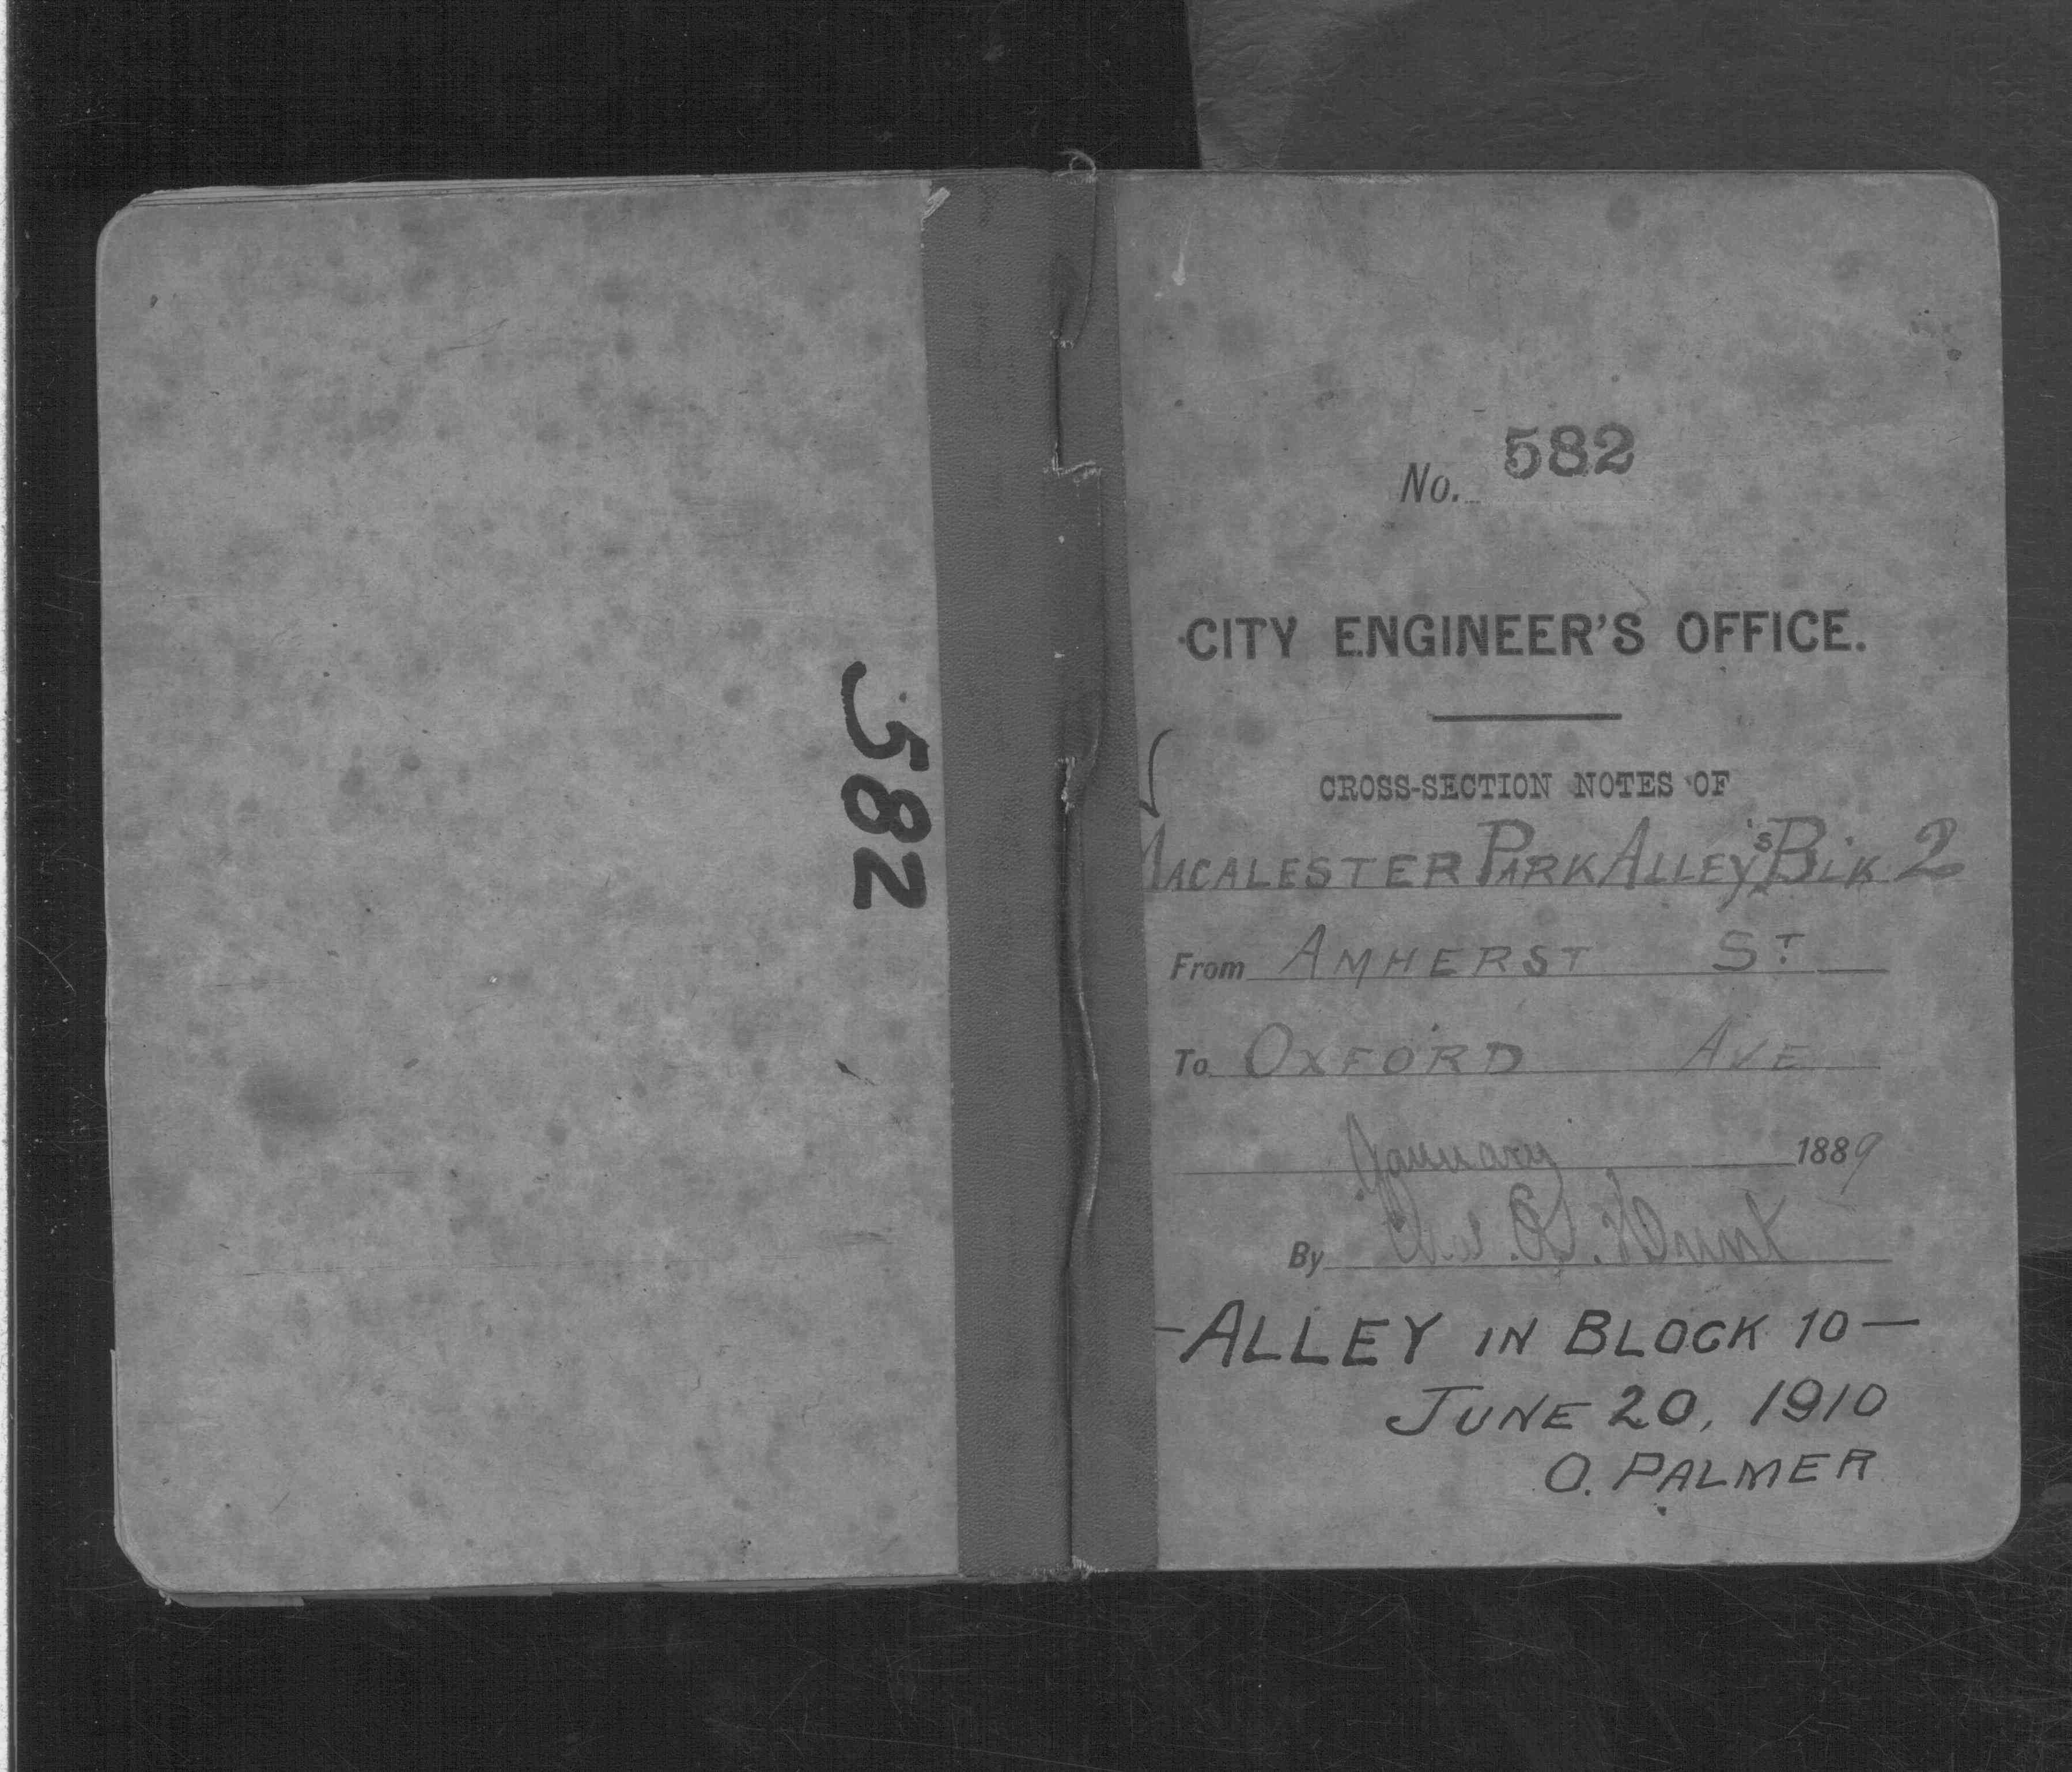 582
No. 582
CITY ENGINEER'S OFFICE.
CROSS-SECTION NOTES OF
MACALESTER PARK ALLEY'S BLK 2
From AMHERST ST
To OXFORD AVE
January 1889
By
-ALLEY IN BLOCK 10-
JUNE 20, 1910
O. PALMER